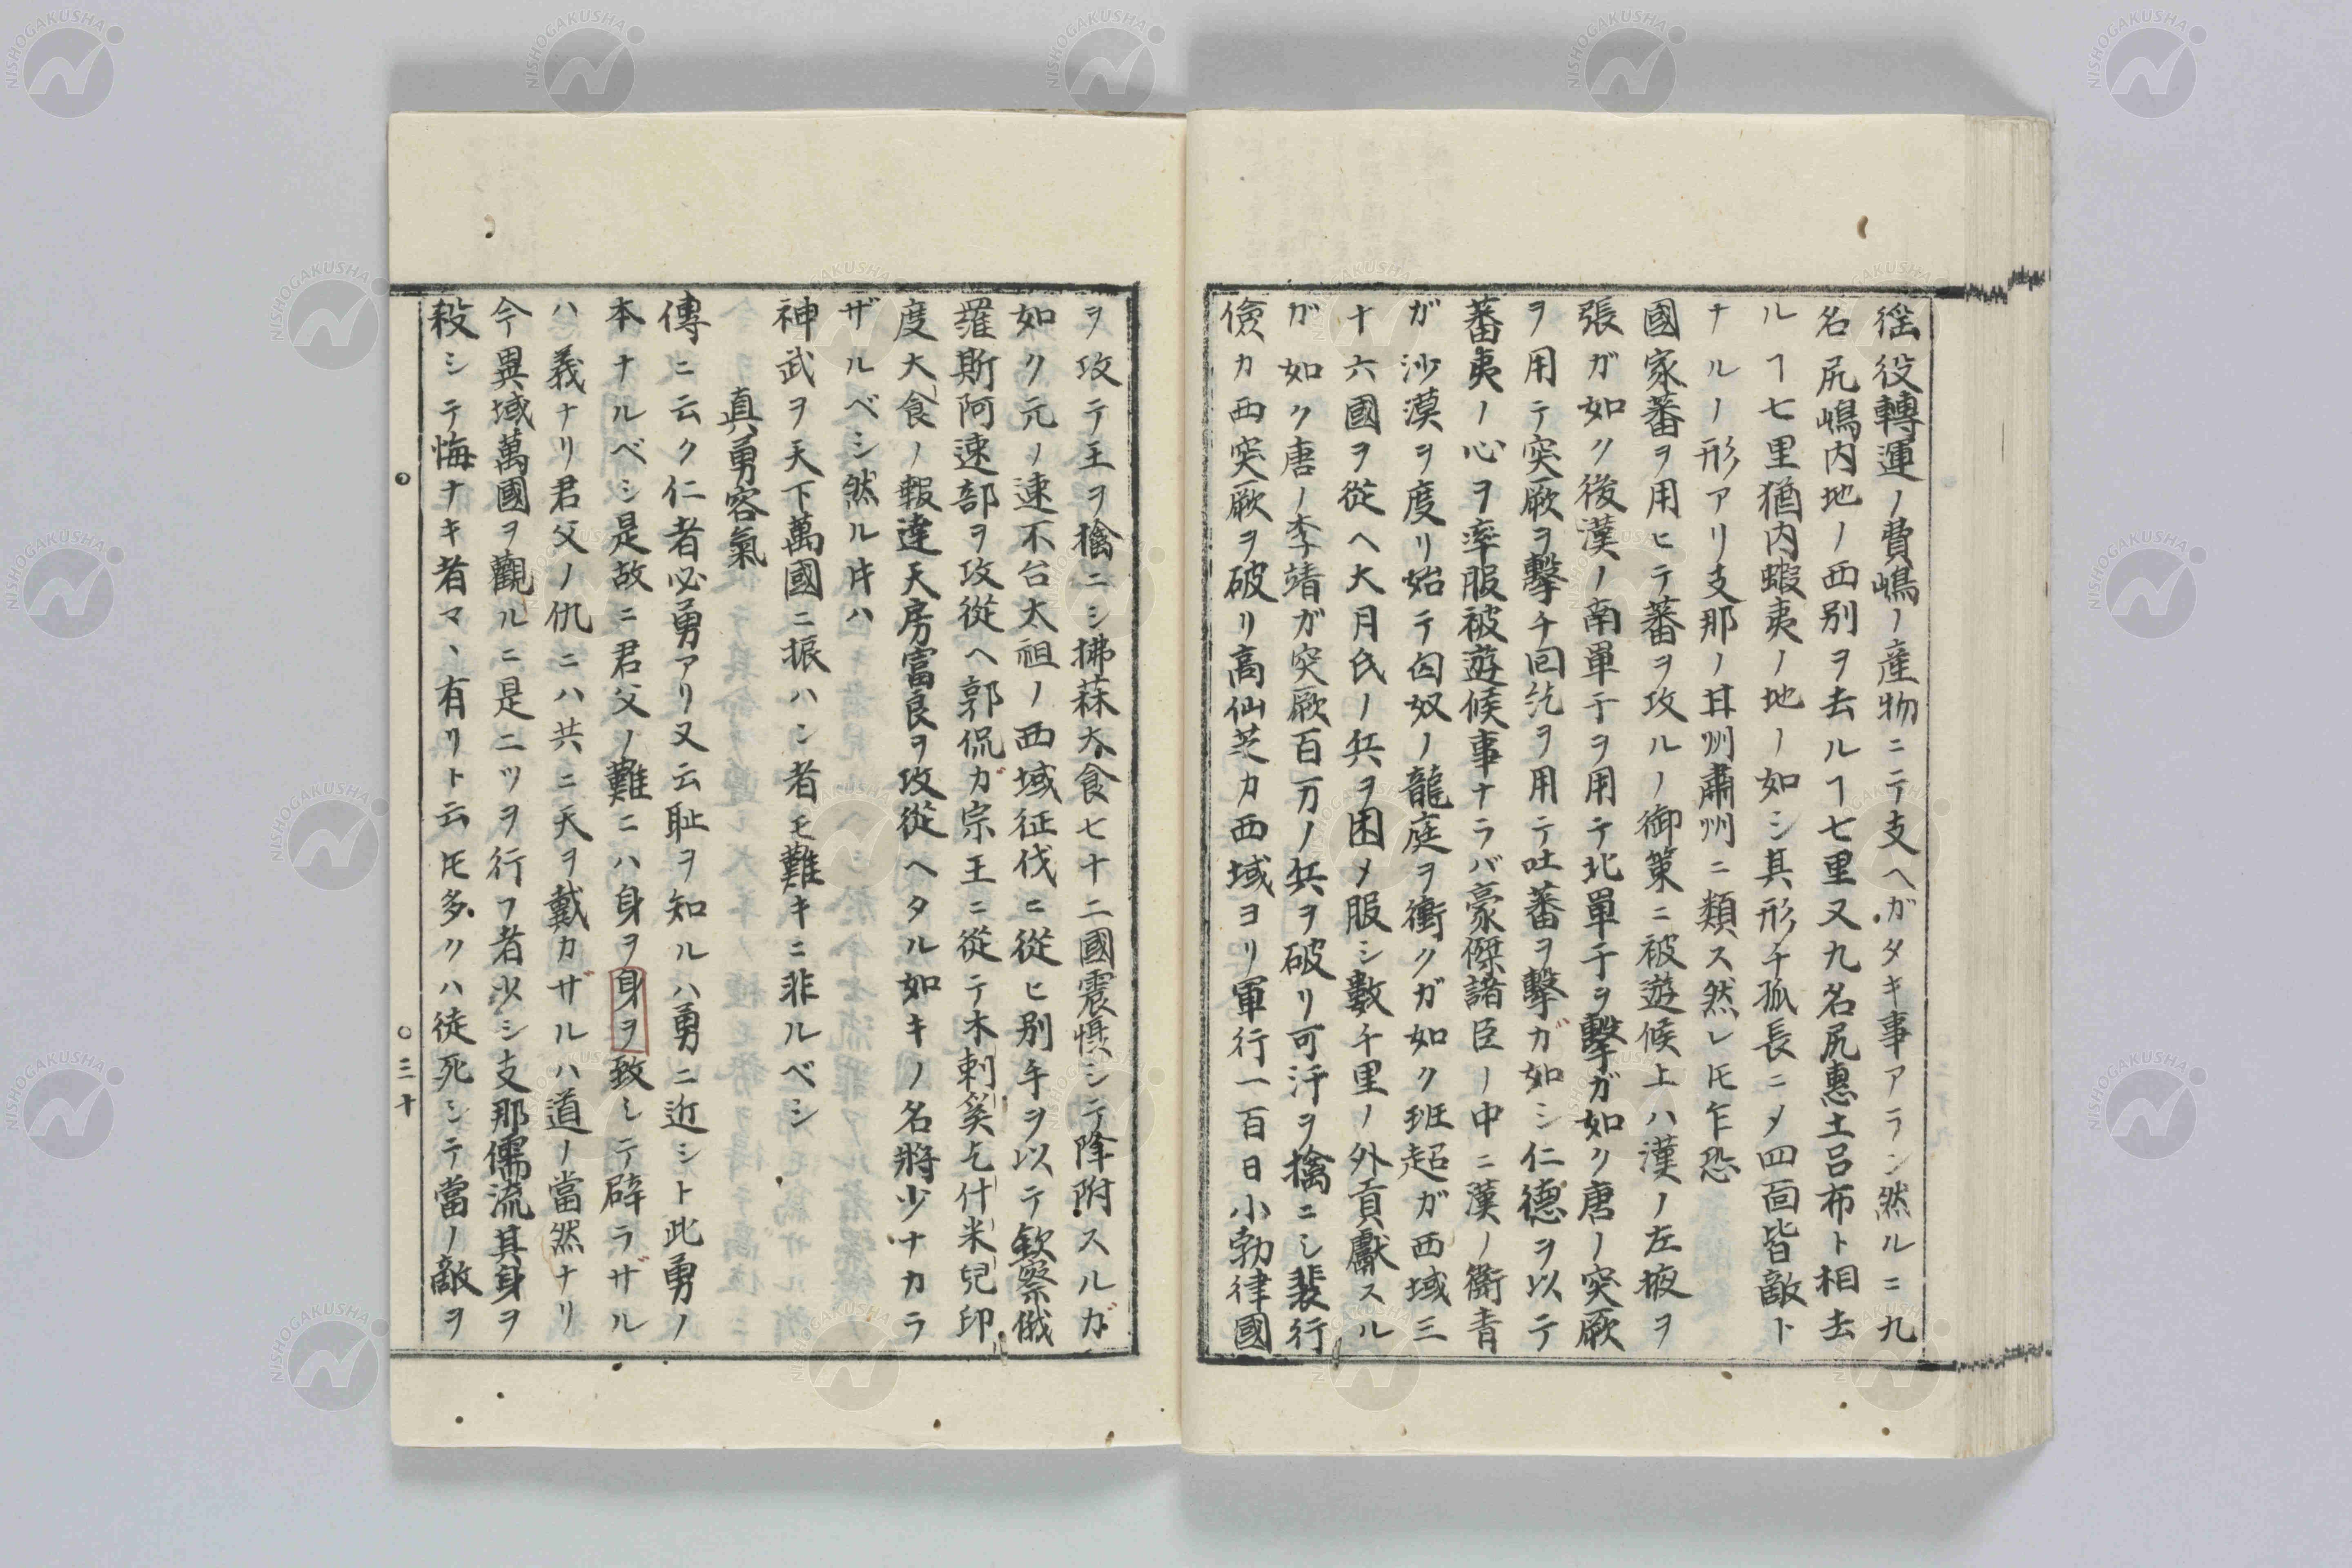 徭役轉運ノ費嶋ノ産物ニテ支ヘガタキ事アラン然ルニ九
名尻嶋内地ノ西別ヲ去ルヿ七里又九名尻惠土呂布ト相去
ルヿ七里猶内蝦夷ノ地ノ如シ其形チ狐長ニメ四面皆敵ト
ナルノ形アリ支那ノ甘州肅州ニ類ス然レ𪜈乍恐
國家蕃ヲ用ヒテ蕃ヲ攻ルノ御策ニ被遊候上ハ漢ノ左掖ヲ
張ガ如ク後漢ノ南單于ヲ用テ北單于ヲ擊ガ如ク唐ノ突厥
ヲ用テ突厥ヲ擊チ回紇ヲ用テ吐蕃ヲ擊ガ如シ仁德ヲ以テ
蕃夷ノ心ヲ率服被遊候事ナラバ豪傑諸臣ノ中ニ漢ノ衛青
ガ沙漠ヲ度リ始テ匈奴ノ龍庭ヲ衝クガ如ク班超ガ西域三
十六國ヲ從ヘ大月氏ノ兵ヲ困メ服シ數千里ノ外貢獻スル
ガ如ク唐ノ李靖ガ突厥百万ノ兵ヲ破リ可汗ヲ擒ニシ裴行
儉カ西突厥ヲ破リ高仙芝カ西域ヨリ軍行一百日小勃律國
ヲ攻テ王ヲ擒ニシ拂菻大食七十二國震慴シテ降附スルガ
如ク元ノ速不台太祖ノ西域征伐ニ從ヒ別手ヲ以テ欽察俄
羅斯阿速部ヲ攻從ヘ郭侃ガ宗王ニ從テ木剌奚乞什米兒印
度大食ノ報達天房富良ヲ攻從ヘタル如キノ名將少ナカラ
ザルベシ然ル片ハ
神武ヲ天下萬國ニ振ハン者モ難キニ非ルベシ
真勇容氣
傳ニ云ク仁者必勇アリ又云耻ヲ知ルハ勇ニ近シト此勇ノ
本ナルベシ是故ニ君父ノ難ニハ身ヲ身ヲ致シテ辟ラザル
ハ義ナリ君父ノ仇ニハ共ニ天ヲ戴カザルハ道ノ當然ナリ
今異域萬國ヲ觀ルニ是ニツヲ行フ者少シ支那儒流其身ヲ
殺シテ悔ナキ者マヽ有リト云𪜈多クハ徒死シテ當ノ敵ヲ
三十
NISHOGAKUSHA